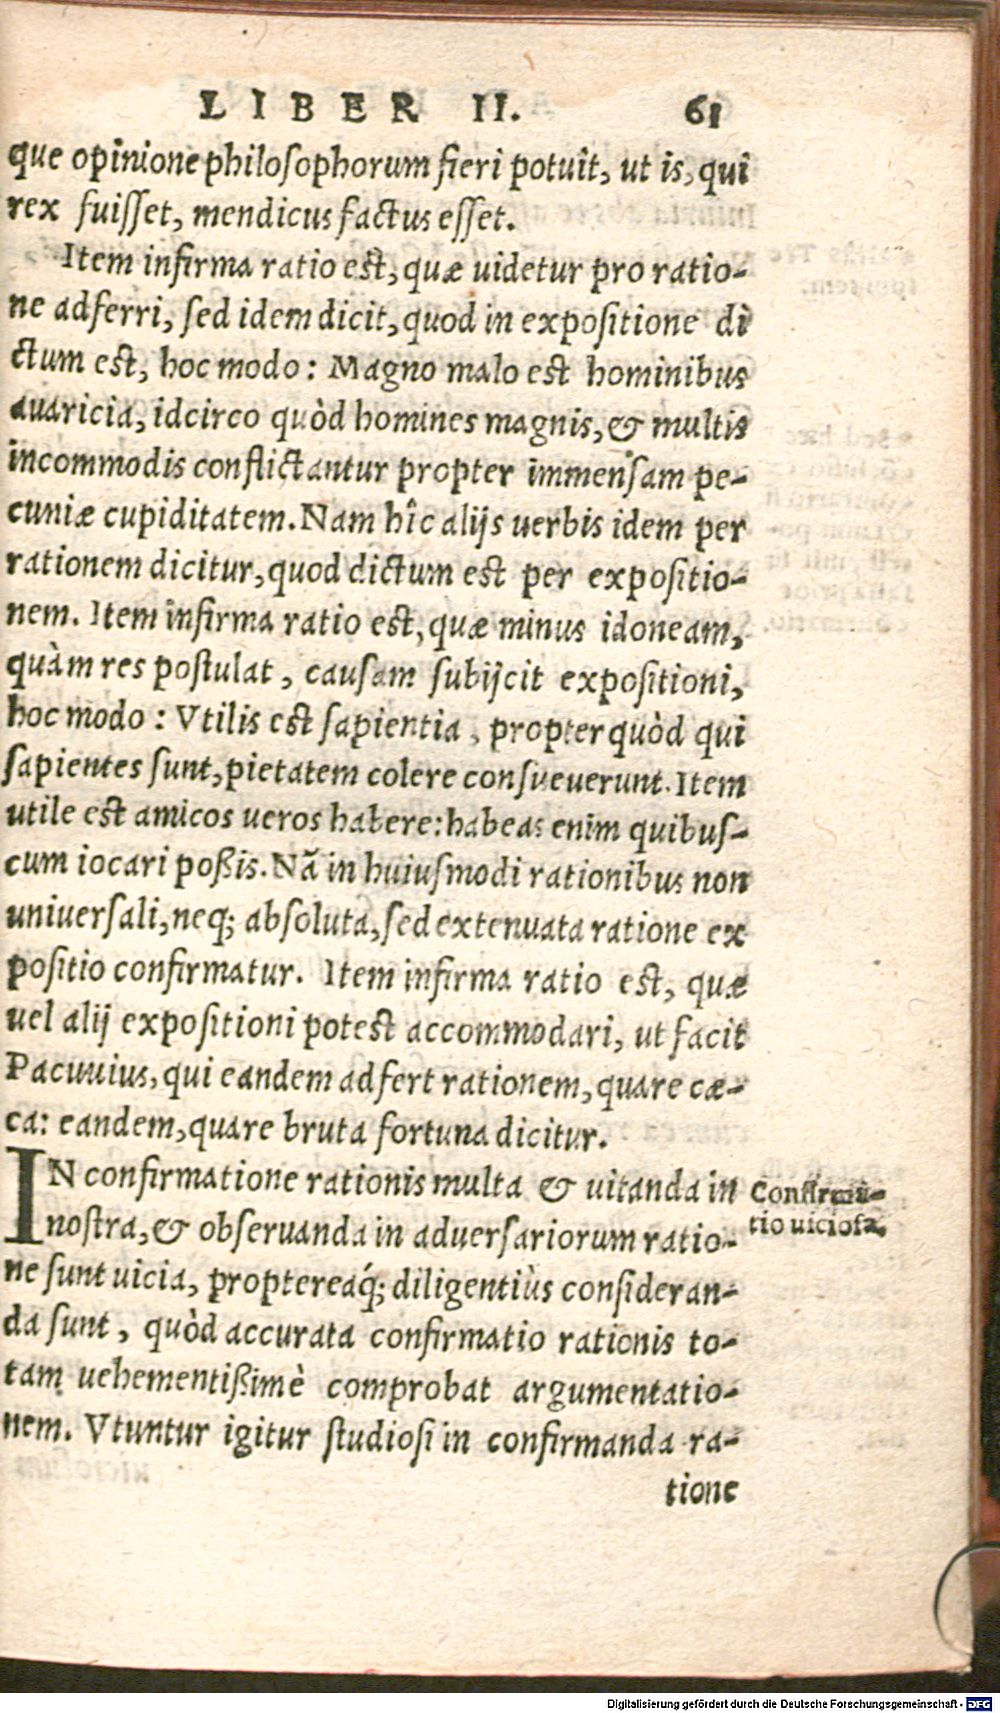 LIBER II. 61
que opinione philosophorum fieri potuit, ut is, qui
rex fuisset, mendicus factus esset.
Item infirma ratio est, quæ uidetur pro ratio-
ne adferri, sed idem dicit, quod in expositione di
ctum est, hoc modo: Magno malo est hominibus
auaricia, idcirco quòd homines magnis, & multis
incommodis conflictantur propter immensam pe-
cuniæ cupiditatem. Nam hîc alijs uerbis idem per
rationem dicitur, quod dictum est per expositio-
nem. Item infirma ratio est, quæ minus idoneam,
quàm res postulat, causam subijcit expositioni,
hoc modo: Vtilis est sapientia, propter quòd qui
sapientes sunt, pietatem colere consueuerunt. Item
utile est amicos ueros habere: habeas enim quibus-
cum iocari poßis. Nã in huiusmodi rationibus non
uniuersali, neq; absoluta, sed extenuata ratione ex
positio confirmatur. Item infirma ratio est, quæ
uel alij expositioni potest accommodari, ut facit
Pacuuius, qui eandem adfert rationem, quare cæ-
ca: eandem, quare bruta fortuna dicitur.
IN confirmatione rationis multa & uitanda in
nostra, & obseruanda in aduersariorum ratio-
ne sunt uicia, proptereaq́; diligentiùs consideran-
da sunt, quòd accurata confirmatio rationis to-
tam uehementißimè comprobat argumentatio-
nem. Vtuntur igitur studiosi in confirmanda ra-
tione
Confirma-
tio uiciosa.
Digitalisierung gefördert durch die Deutsche Forschungsgemeinschaft - DFG